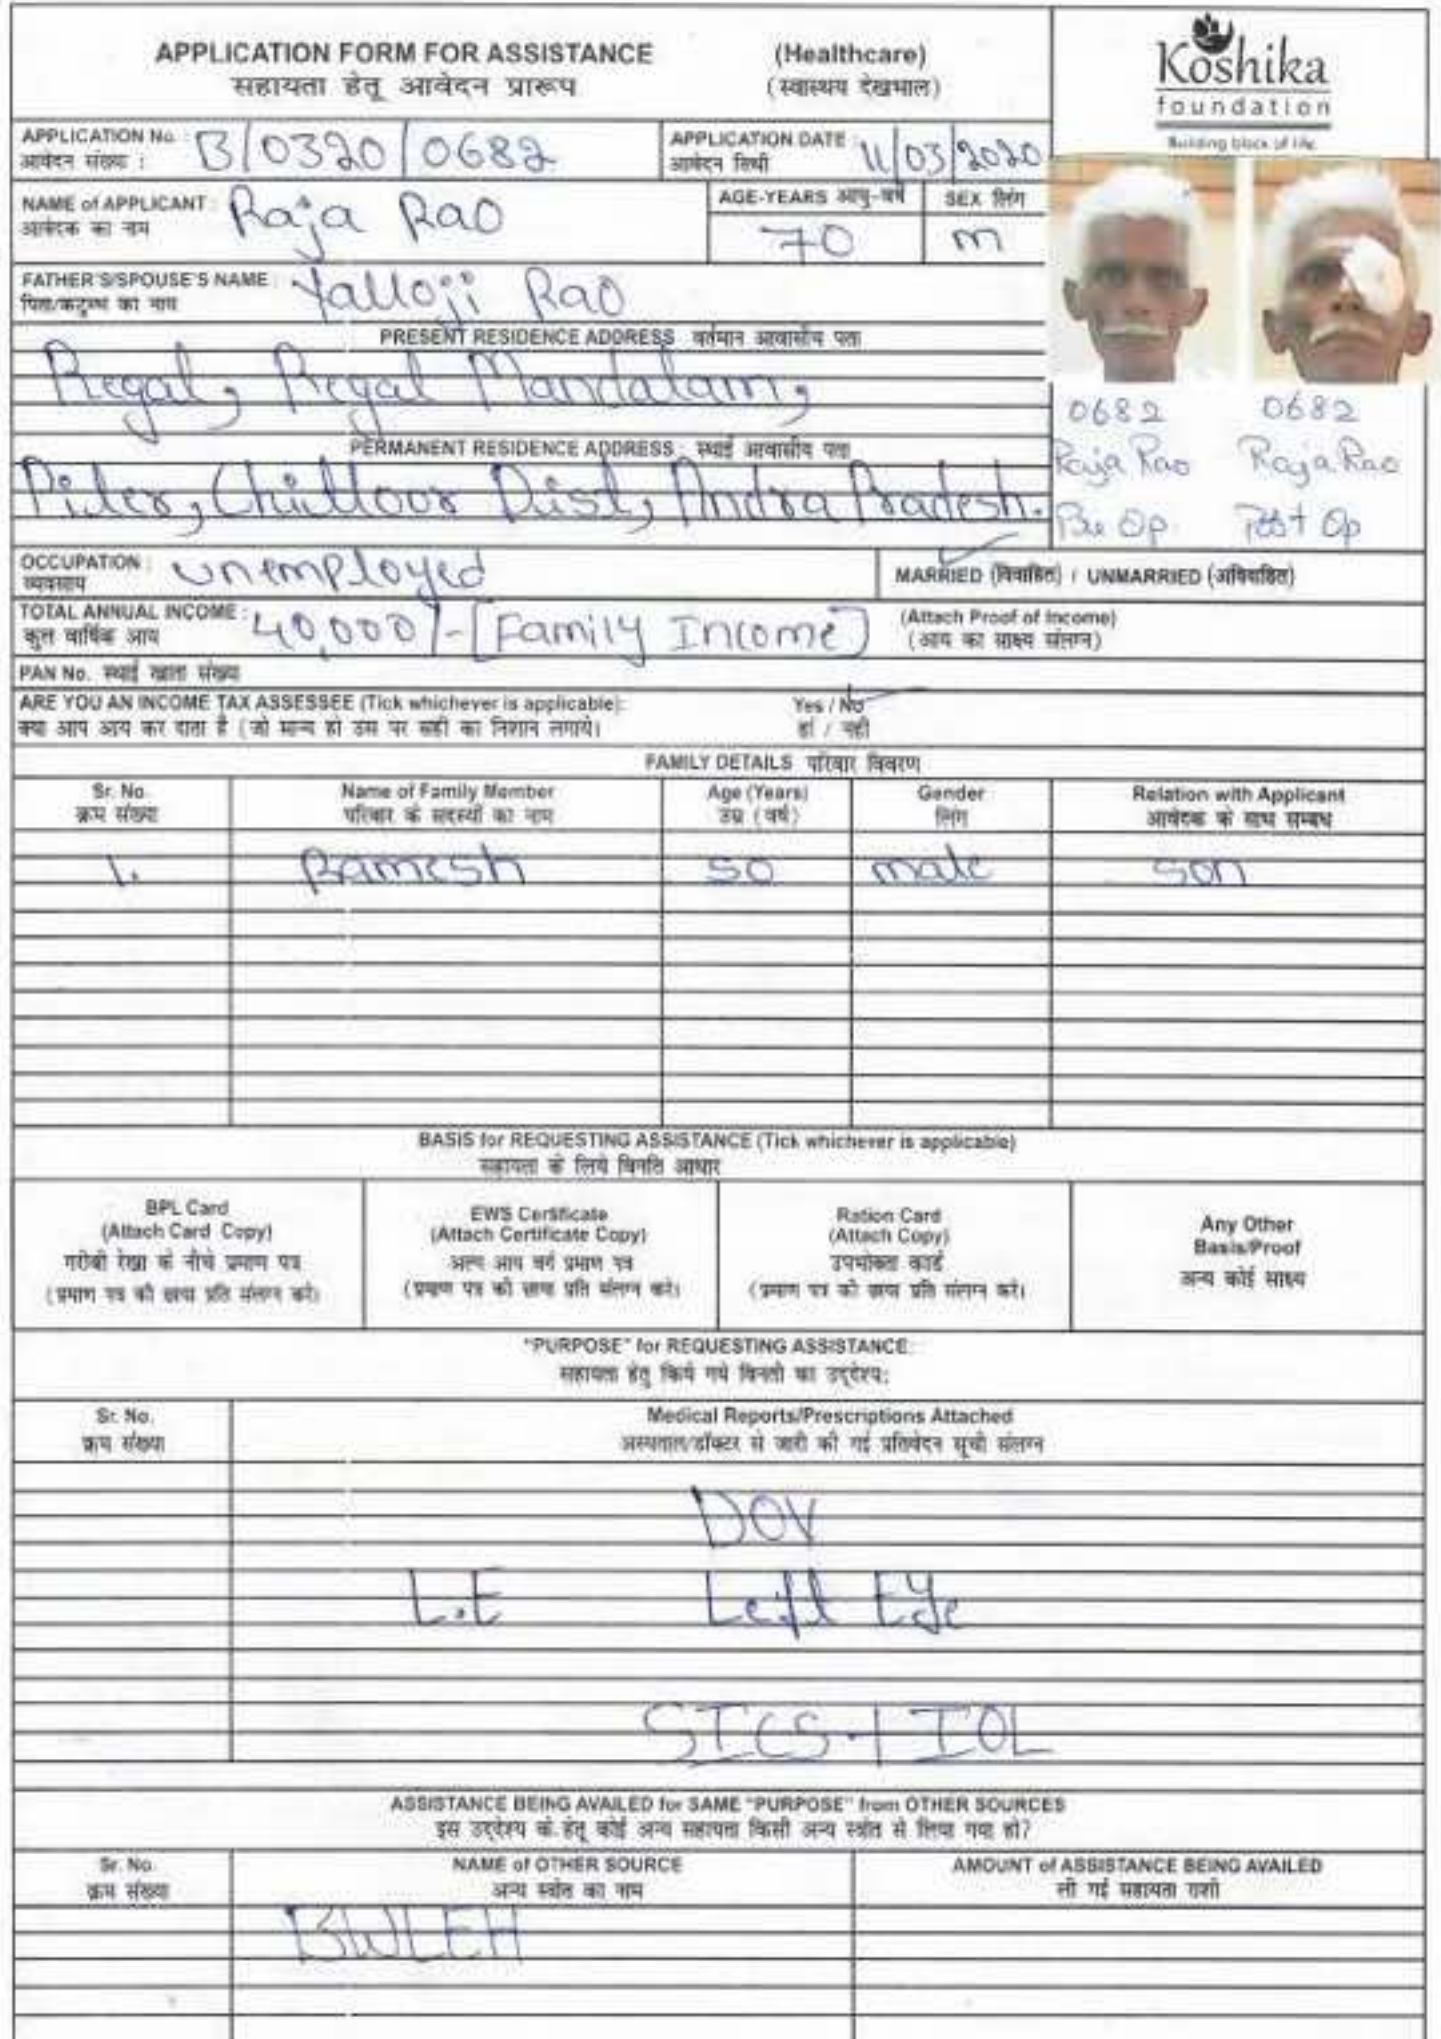 APPLICATION FORM FOR ASSISTANCE (Healthcare)
सहायता हेतू आवेदन प्रारूप (स्वास्थय देखभाल)
Koshika
foundation
Building block of life.
APPLICATION No. : B/0320/0682
आवेदन संख्या :
APPLICATION DATE : 11/03/2020
आवेदन तिथी
NAME of APPLICANT : Raja Rao
आवेदक का नाम
AGE-YEARS आयु-वर्ष 70
SEX लिंग m
FATHER'S/SPOUSE'S NAME : Yalloji Rao
पिता/कटुम्ब का नाम
PRESENT RESIDENCE ADDRESS वर्तमान आवासीय पता
Regal, Regal Mandalam,
PERMANENT RESIDENCE ADDRESS : स्थाई आवासीय पता
Piler, Chittoor Dist, Andra Pradesh.
0682 0682
Raja Rao Raja Rao
Pre Op Post Op
OCCUPATION : unemployed
व्यवसाय
MARRIED (विवाहित) / UNMARRIED (अविवाहित)
TOTAL ANNUAL INCOME : 40,000/- [Family Income]
कुल वार्षिक आय
(Attach Proof of Income)
(आय का साक्ष्य संलग्न)
PAN No. स्थाई खाता संख्या
ARE YOU AN INCOME TAX ASSESSEE (Tick whichever is applicable): Yes / No
क्या आप आय कर दाता है (जो मान्य हो उस पर सही का निशान लगाये। हां / नही
FAMILY DETAILS परिवार विवरण
Sr. No. Name of Family Member Age (Years) Gender Relation with Applicant
क्रम संख्या परिवार के सदस्यों का नाम उम्र (वर्ष) लिंग आवेदक के साथ सम्बध
1. Ramesh 50 male son
BASIS for REQUESTING ASSISTANCE (Tick whichever is applicable)
सहायता के लिये विनति आधार
BPL Card
(Attach Card Copy)
गरीबी रेखा के नीचे प्रमाण पत्र
(प्रमाण पत्र की छाया प्रति संलग्न करे)
EWS Certificate
(Attach Certificate Copy)
अल्प आय वर्ग प्रमाण पत्र
(प्रमाण पत्र की छाया प्रति संलग्न करे)
Ration Card
(Attach Copy)
उपभोक्ता कार्ड
(प्रमाण पत्र की छाया प्रति संलग्न करे)
Any Other
Basis/Proof
अन्य कोई साक्ष्य
"PURPOSE" for REQUESTING ASSISTANCE:
सहायता हेतु किये गये विनती का उद्देश्य:
Sr. No. Medical Reports/Prescriptions Attached
क्रम संख्या अस्पताल/डॉक्टर से जारी की गई प्रतिवेदन सूची संलग्न
DOV
L.E Left Eye
SICS + IOL
ASSISTANCE BEING AVAILED for SAME "PURPOSE" from OTHER SOURCES
इस उद्देश्य के हेतू कोई अन्य सहायता किसी अन्य स्त्रोत से लिया गया हो?
Sr. No. NAME of OTHER SOURCE AMOUNT of ASSISTANCE BEING AVAILED
क्रम संख्या अन्य स्त्रोत का नाम ली गई सहायता राशी
BWLEH